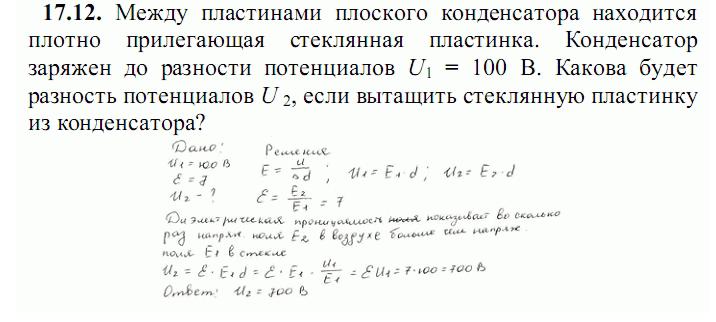 17.12. Между пластинами плоского конденсатора находится
плотно прилегающая стеклянная пластинка. Конденсатор
заряжен до разности потенциалов U₁ = 100 В. Какова будет
разность потенциалов U ₂, если вытащить стеклянную пластинку
из конденсатора?
Дано: Решение
U₁ = 100 В E = U/Δd ; U₁ = E₁·d ; U₂ = E₂·d
ε = 7
U₂ - ? ε = E₂/E₁ = 7
Диэлектрическая проницаемость показывает во сколько
раз напряж. поля E₂ в воздухе больше чем напряж.
поля E₁ в стекле
U₂ = ε·E₁d = ε·E₁·U₁/E₁ = εU₁ = 7·100 = 700 В
Ответ: U₂ = 700 В